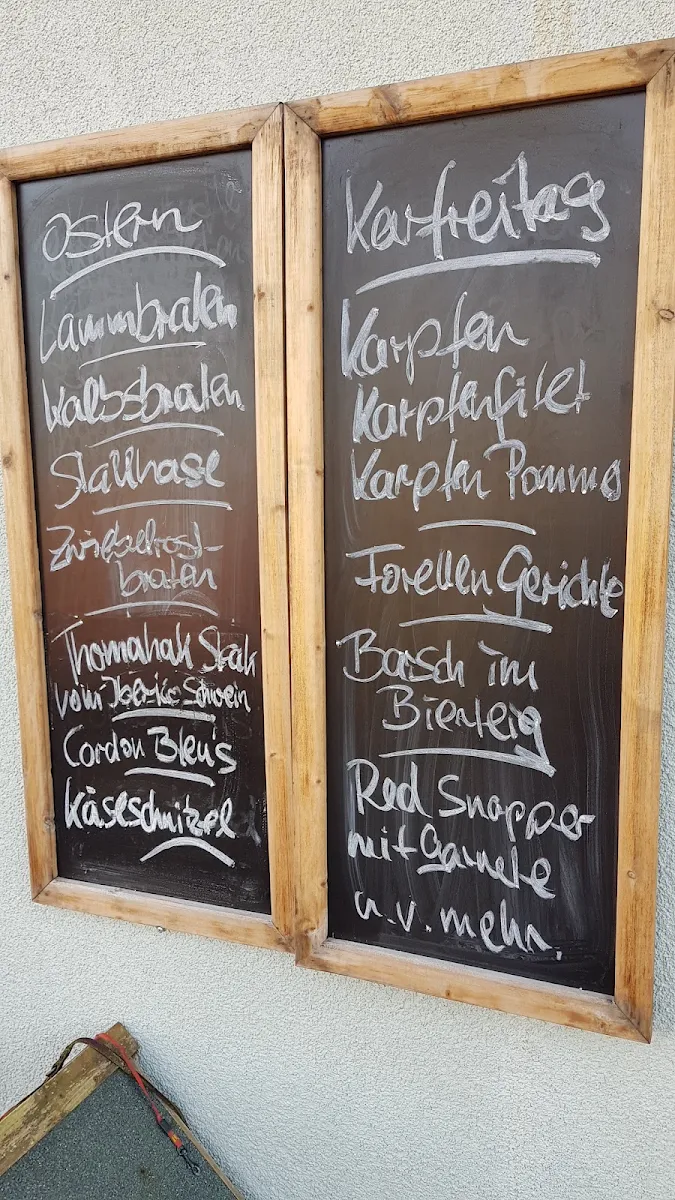 Ostern
Lammbraten
Kalbsbraten
Stallhase
Zwiebelrost-
braten
Thomahak Steak
vom Iberico Schwein
Cordon Bleu's
Käseschnitzel
Karfreitag
Karpfen
Karpfenfilet
Karpfen Pommes
Forellen Gerichte
Barsch im
Bierteig
Red Snapper
mit Garnele
u.v.mehr.